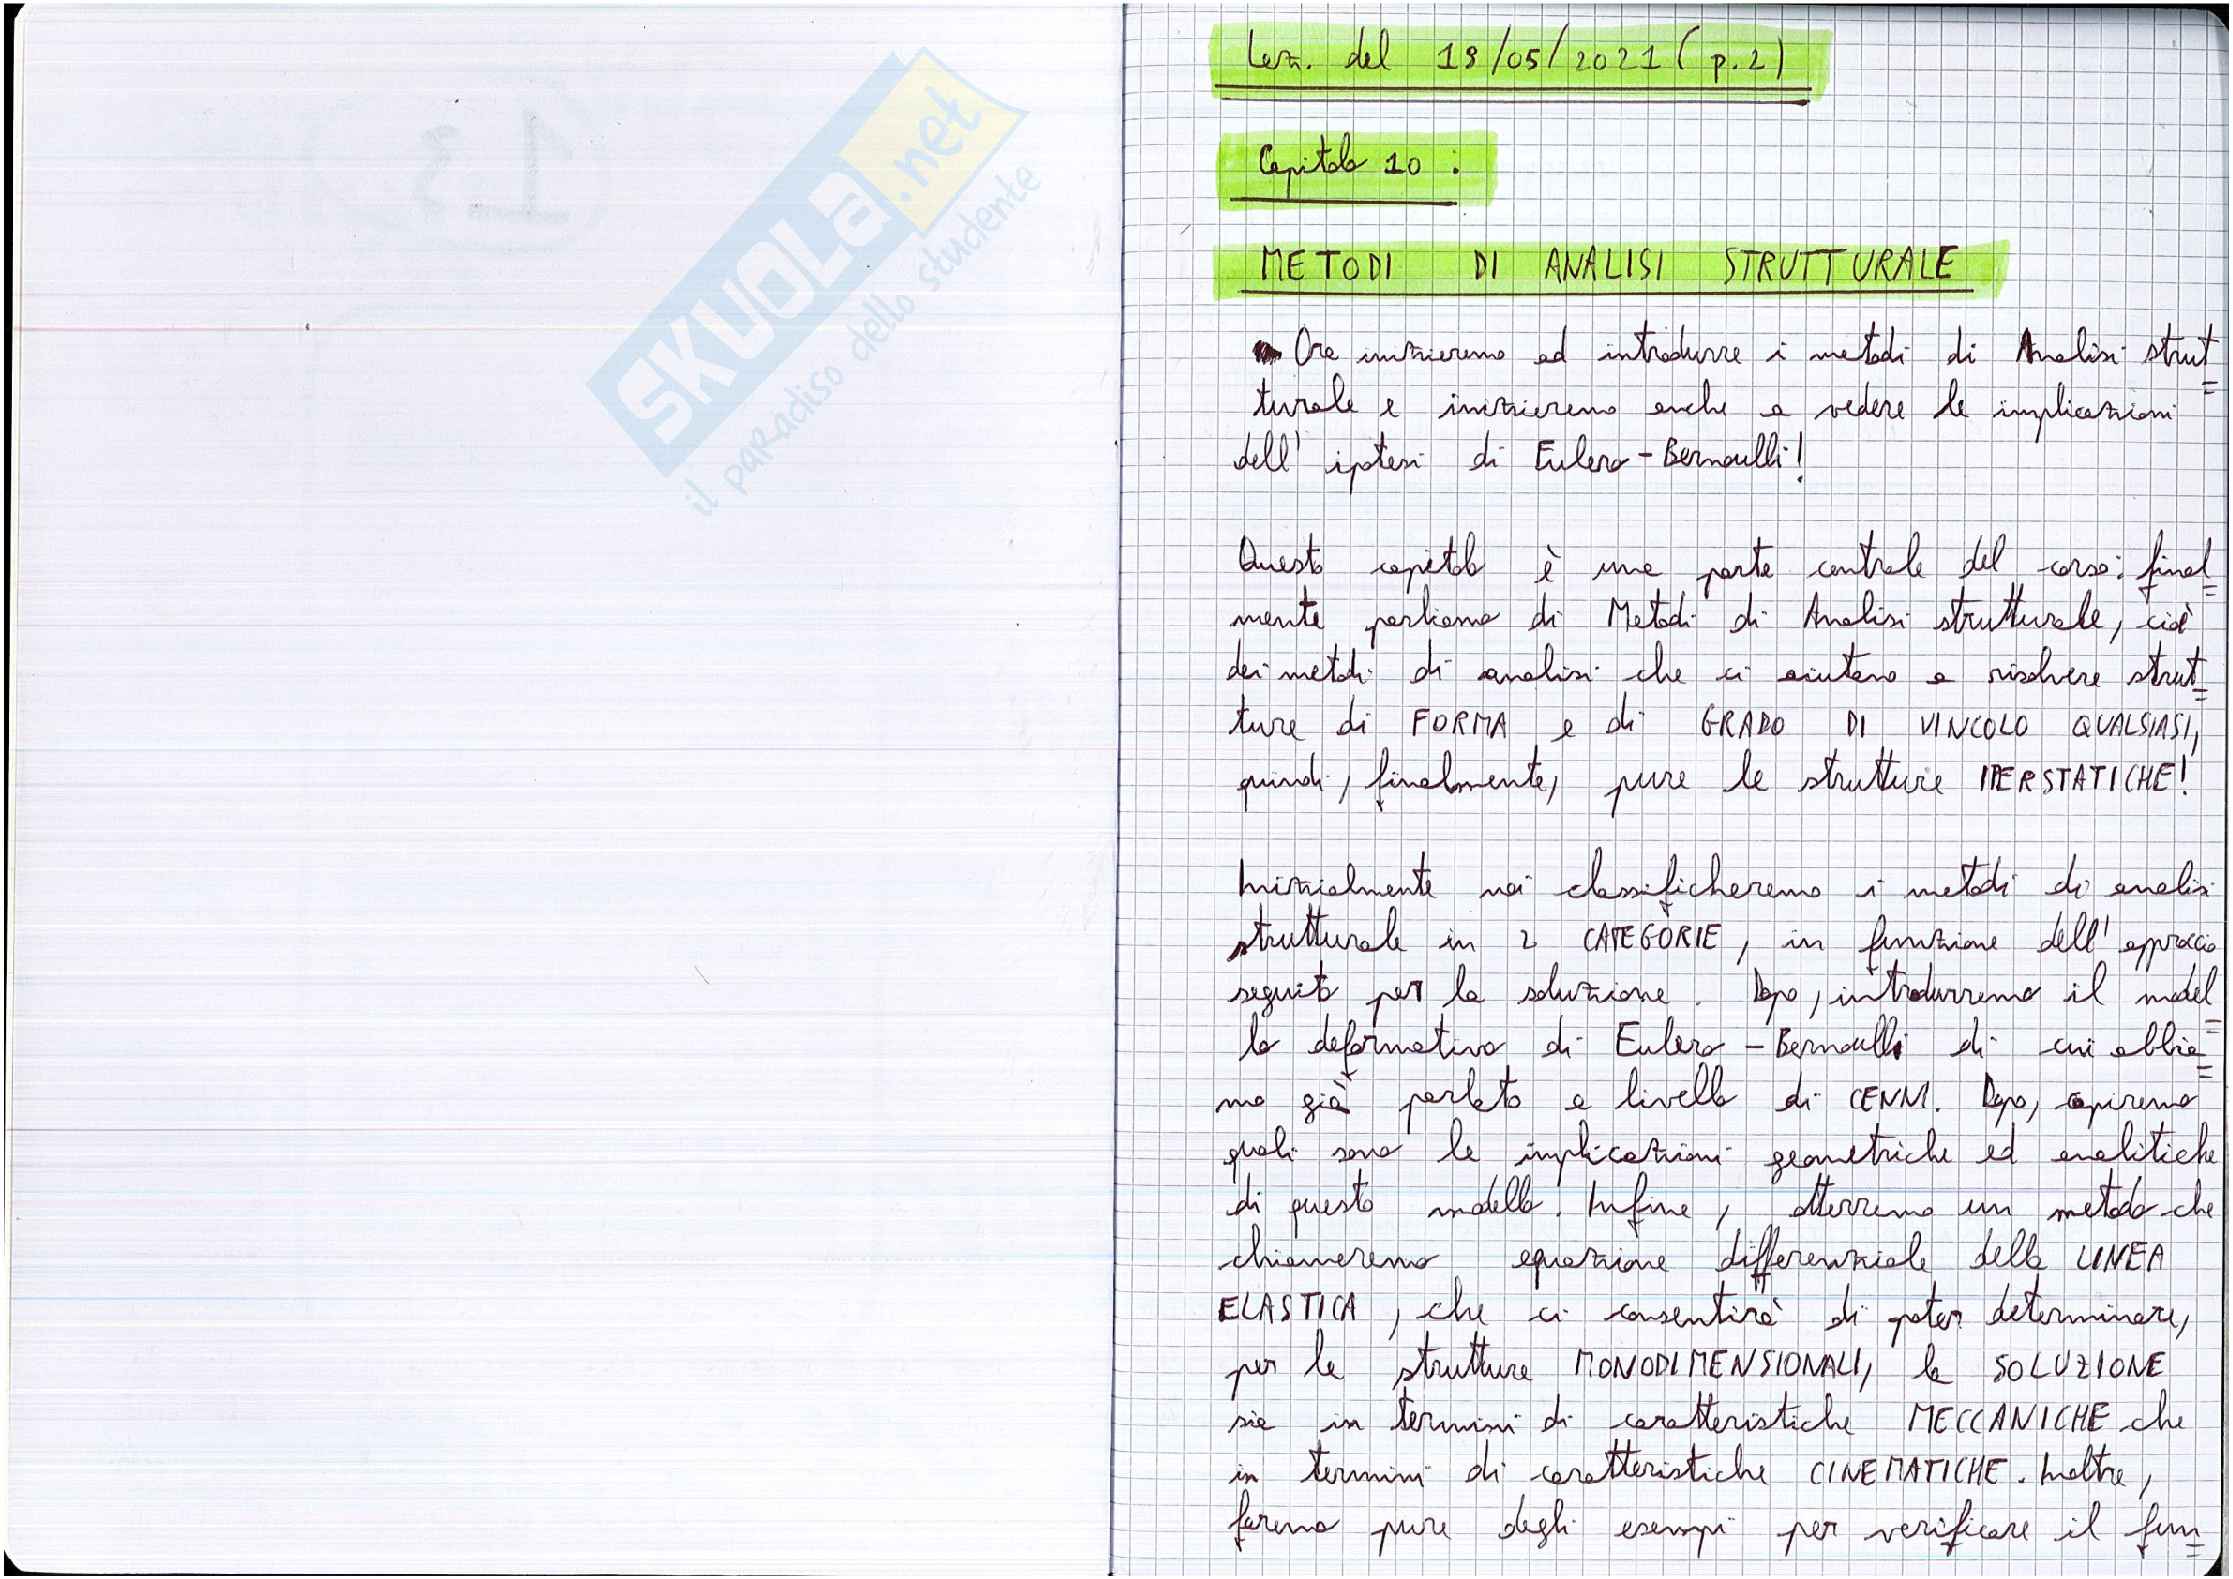 SKUOLA.net
il paradiso dello studente
Lez. del 18/05/2021 (p.2)
Capitolo 10 :
METODI DI ANALISI STRUTTURALE
Ora inizieremo ad introdurre i metodi di Analisi strut
turale e inizieremo anche a vedere le implicazioni
dell' ipotesi di Eulero-Bernoulli!
Questo capitolo è una parte centrale del corso: final
mente parliamo di Metodi di Analisi strutturale, cioè
dei metodi di analisi che ci aiutano a risolvere strut
ture di FORMA e di GRADO DI VINCOLO QUALSIASI,
quindi, finalmente, pure le strutture IPERSTATICHE!
Inizialmente noi classificheremo i metodi di analisi
strutturale in 2 CATEGORIE, in funzione dell' approccio
seguito per la soluzione. Dopo, introdurremo il model
lo deformativo di Eulero-Bernoulli di cui abbia
mo già parlato a livello di CENNI. Dopo, capiremo
quali sono le implicazioni geometriche ed analitiche
di questo modello. Infine, otterremo un metodo che
chiameremo equazione differenziale della LINEA
ELASTICA, che ci consentirà di poter determinare,
per le strutture MONODIMENSIONALI, la SOLUZIONE
sia in termini di caratteristiche MECCANICHE che
in termini di caratteristiche CINEMATICHE. Inoltre,
faremo pure degli esempi per verificare il fun